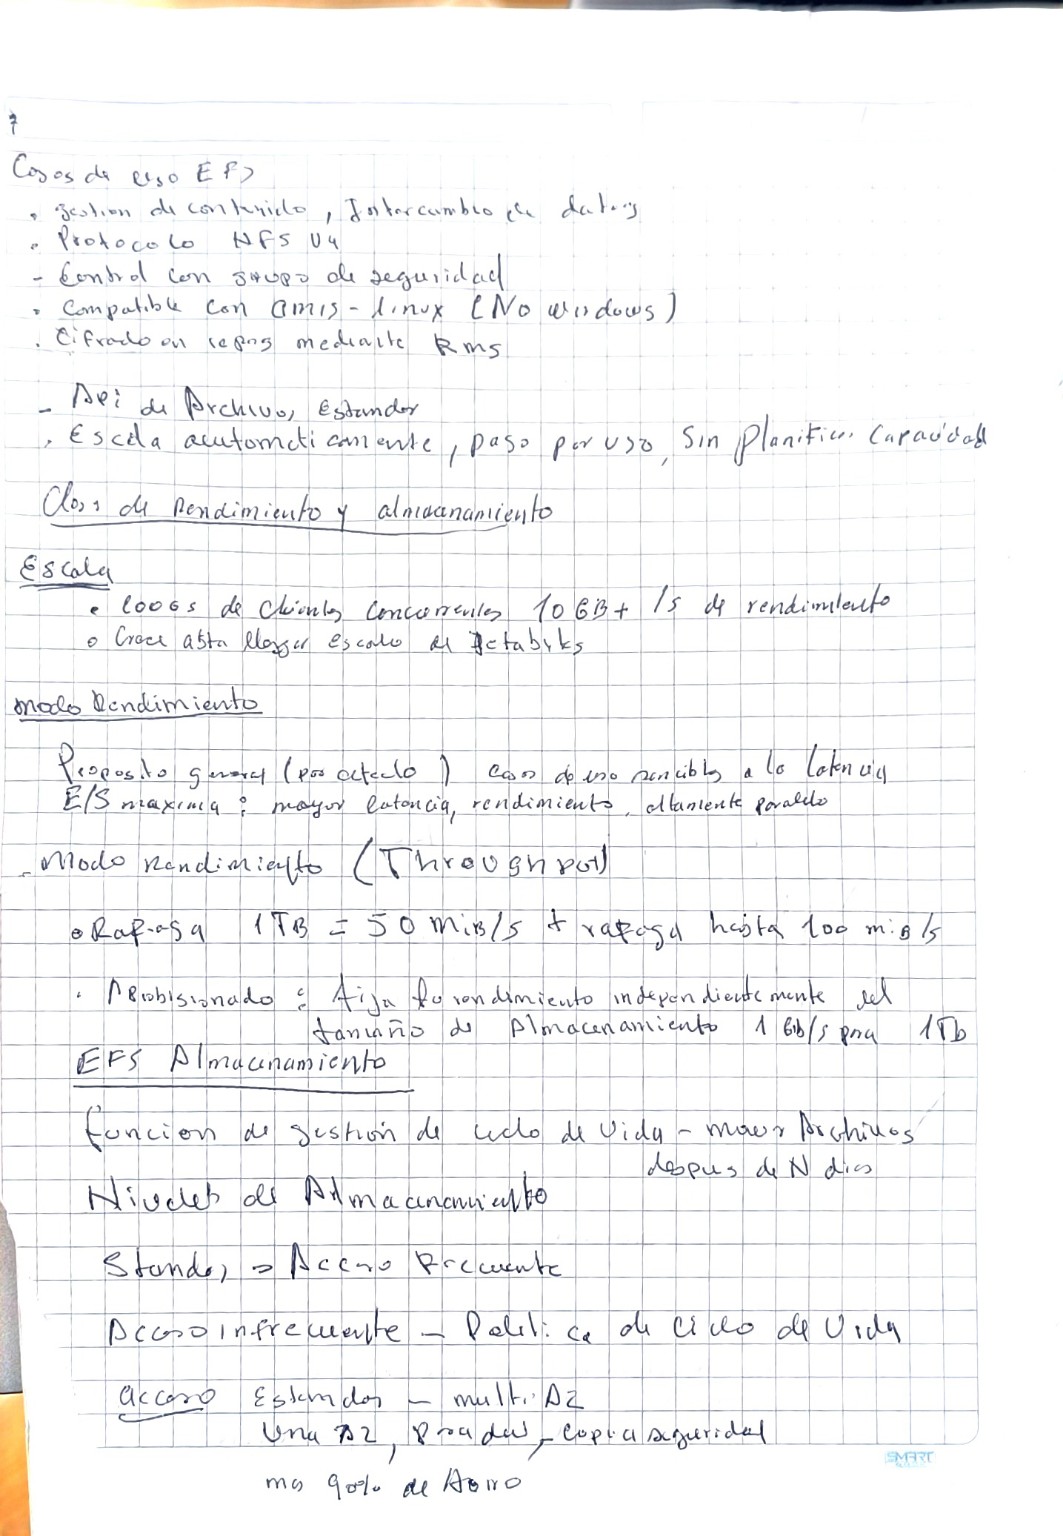 7
Casos de uso EFS
. gestion de contenido, Intercambio de datos
. Protocolo NFS V4
- Control con grupo de seguridad
. Compatible con amis - linux (No windows)
. Cifrado en repos mediante Kms
- Api de Archivos Estander
. Escala automaticamente, pago por uso, sin planificar capacidad
Class de Rendimiento y almacenamiento
Escala
. 1000s de clientes concurrentes 10 GB+ /s de rendimiento
o Crece asta llegar escala de Petabyts
modo Rendimiento
Proposito general (por ) casos de uso sencibles a la latencia
E/S maxima : mayor latencia, rendimiento, altamente paralelo
- Modo Rendimiento (Throughput)
o Rafaga 1TB = 50 MiB/s + rafaga hasta 100 miB/s
. Aprobisionado : fija tu rendimiento independientemente del
tamaño de Almacenamiento 1 Gib/s para 1Tb
EFS Almacenamiento
funcion de gestión de ciclo de vida - mover Archivos
despues de N dias
Niveles de Almacenamiento
Standar, Acceso Frecuente
Acceso infrecuente - Politica de ciclo de vida
acceso Estandar - multi AZ
Una AZ, - copia seguridad
mas 90% de Ahorro
SMART